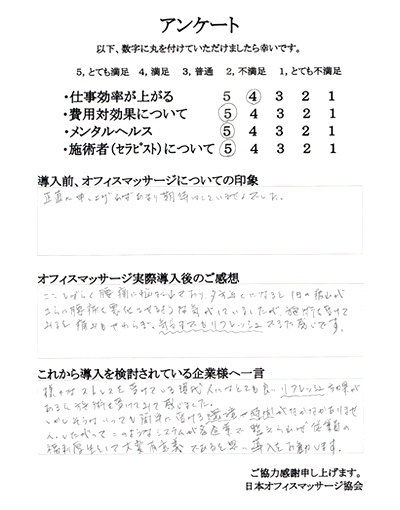 アンケート
以下、数字に丸を付けていただけましたら幸いです。
5, とても満足 4, 満足 3, 普通 2, 不満足 1, とても不満足
・仕事効率が上がる 5 4 3 2 1
・費用対効果について 5 4 3 2 1
・メンタルヘルス 5 4 3 2 1
・施術者(セラピスト)について 5 4 3 2 1
導入前、オフィスマッサージについての印象
正直に申し上げればあまり期待はしていませんでした。
オフィスマッサージ実際導入後のご感想
ここしばらく腰痛に悩む
さらに腰痛を悪化させる
みると痛みもやわらぎ、気分までもリフレッシュできた感じです。
これから導入を検討されている企業様へ一言
様々なストレスを受けている現代人にはとても良いリフレッシュ効果が
あると施術を受けてみて感じました。
しかしそうはいっても簡単に受ける環境、時間がなかなかありませ
ん。したがって、このようなシステムが各企業で整えられれば従業員の
福利厚生として大変有意義であると思い導入をお勧めします。
ご協力感謝申し上げます。
日本オフィスマッサージ協会